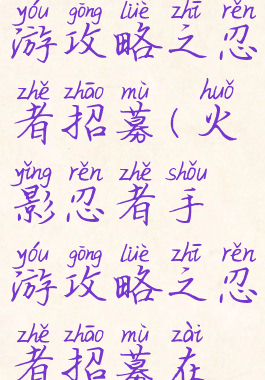 yóu gōng lüè zhī rěn
游攻略之忍
zhě zhāo mù huǒ
者招募(火
yǐng rěn zhě shǒu
影忍者手
yóu gōng lüè zhī rěn
游攻略之忍
zhě zhāo mù zài
者招募在